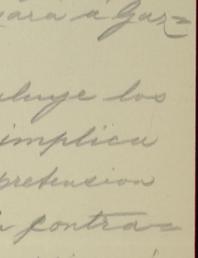 para á Gar=
luye los
implica
pretension
contra=